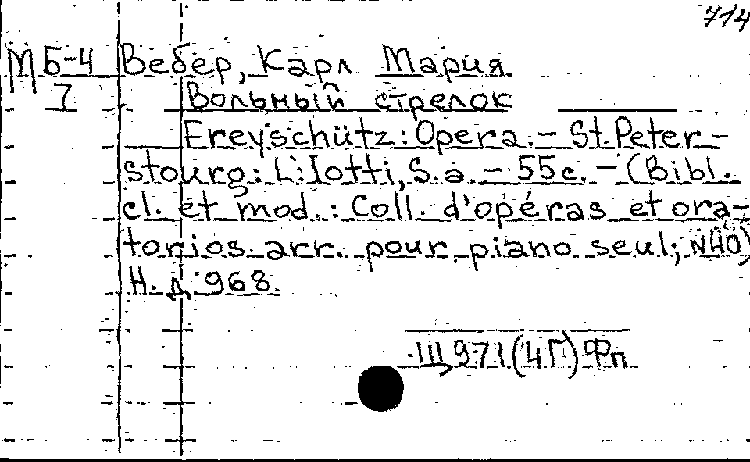 714
М Б-4 Вебер, Карл Мария
7 Вольный стрелок
Freyschütz: Opera. - St. Peter-
stourg: L. Iotti, S. a. - 55c. - (Bibl.
cl. et mod.: Coll. d'opéras et ora-
torios arr. pour piano seul; N40)
Н. д. 968.
Щ971(4Г)Фп